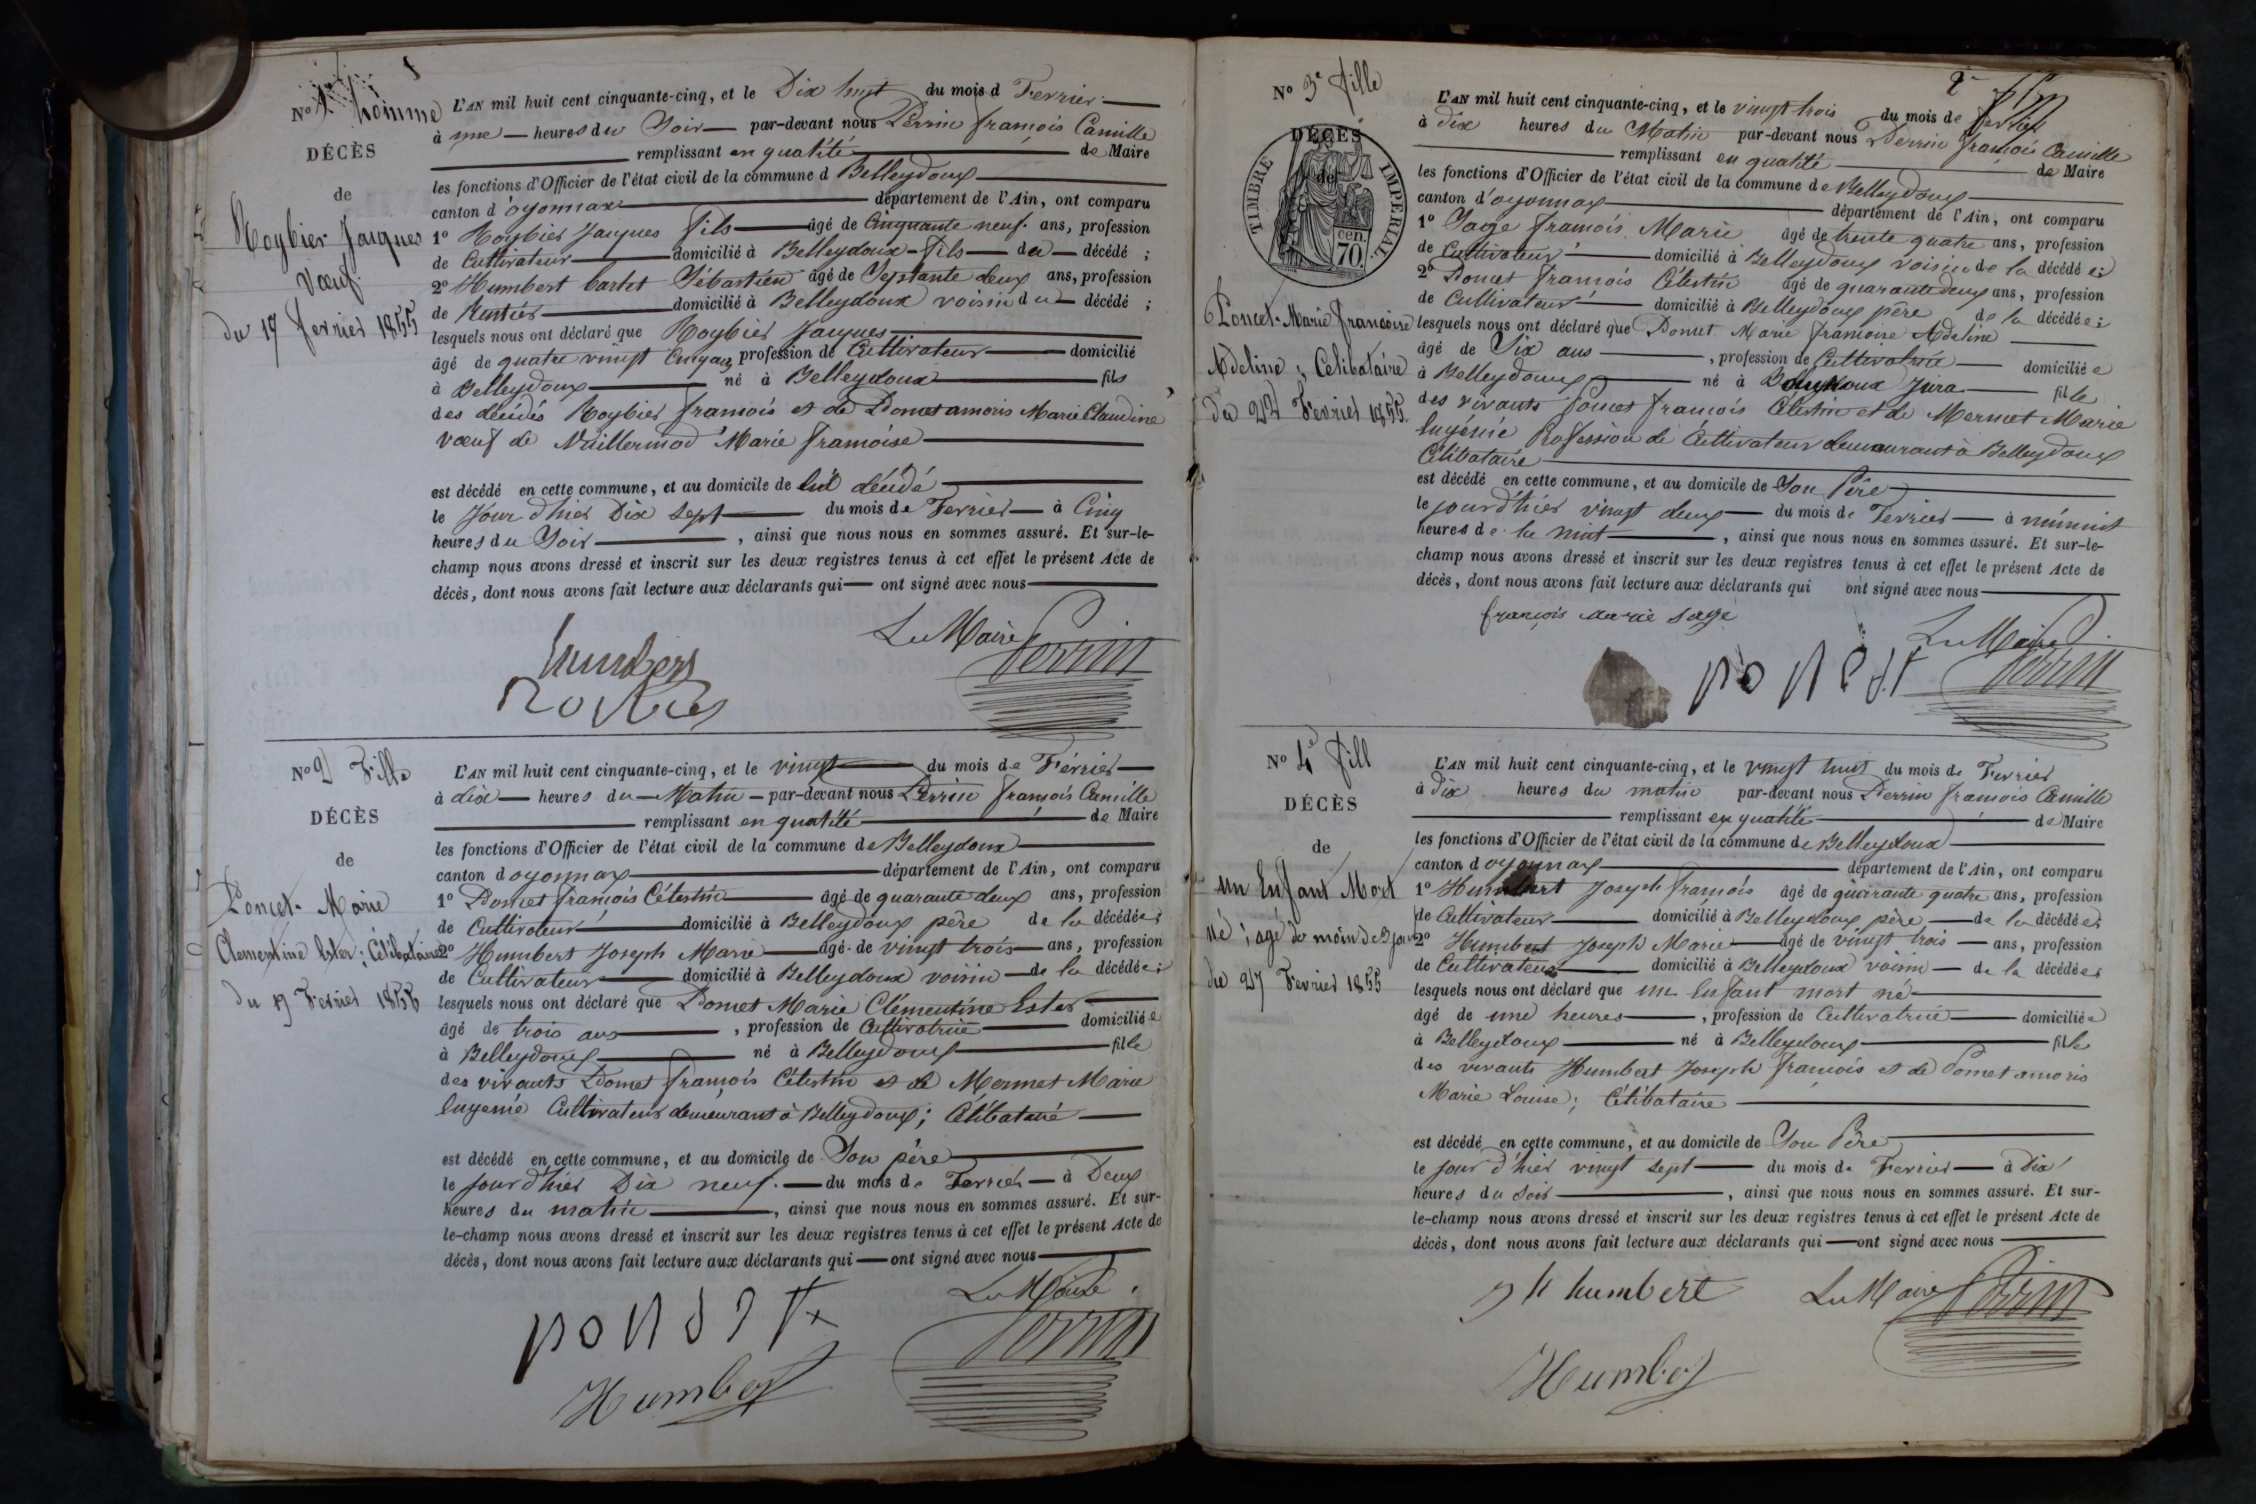 No 1er homme
DÉCÈS
de
Roybier Jacques
Vœuf
du 17 fevrier 1855
L'AN mil huit cent cinquante-cinq, et le Dix huit du mois d Fevrier
à une heures du Soir par-devant nous Perrin françois Camille
remplissant en qualité de Maire
les fonctions d'Officier de l'état civil de la commune d Belleydoux
canton d'oyonnax département de l'Ain, ont comparu
1º Roybier Jacques fils âgé de Cinquante neuf ans, profession
de Cultivateur domicilié à Belleydoux fils du décédé ;
2º Humbert bartet Sébastien âgé de Septante deux ans, profession
de Rentier domicilié à Belleydoux voisin du décédé ;
lesquels nous ont déclaré que Roybier Jacques
âgé de quatre vingt Cinq ans, profession de Cultivateur domicilié
à Belleydoux né à Belleydoux fils
des décédés Roybier françois et de Poncet amoris Marie Claudine
vœuf de Vuillermod Marie françoise
est décédé en cette commune, et au domicile de lui décédé
le Jour d'hier Dix Sept du mois de Fevrier à Cinq
heures du Soir, ainsi que nous nous en sommes assuré. Et sur-le-
champ nous avons dressé et inscrit sur les deux registres tenus à cet effet le présent Acte de
décès, dont nous avons fait lecture aux déclarants qui ont signé avec nous
Le Maire Perrin
humbert
Roybier
No 2 Fille
DÉCÈS
de
Poncet Marie
Clementine Ester ; Célibataire
du 19 Fevrier 1855
L'AN mil huit cent cinquante-cinq, et le vingt du mois de Février
à dix heures du Matin par-devant nous Perrin françois Camille
remplissant en qualité de Maire
les fonctions d'Officier de l'état civil de la commune de Belleydoux
canton d oyonnax département de l'Ain, ont comparu
1º Poncet françois Célestin âgé de quarante deux ans, profession
de Cultivateur domicilié à Belleydoux père de la décédée ;
2º Humbert Joseph Marie âgé de vingt trois ans, profession
de Cultivateur domicilié à Belleydoux voisin de la décédée ;
lesquels nous ont déclaré que Poncet Marie Clémentine Ester
âgé de trois ans, profession de Cultivatrice domiciliée
à Belleydoux né à Belleydoux fille
des vivants Poncet françois Célestin et de Mermet Marie
Eugenie Cultivateur demeurant à Belleydoux ; Célibataire
est décédé en cette commune, et au domicile de Son père
le Jour d'hier Dix neuf du mois de Fevrier à Deux
heures du matin, ainsi que nous nous en sommes assuré. Et sur-
le-champ nous avons dressé et inscrit sur les deux registres tenus à cet effet le présent Acte de
décès, dont nous avons fait lecture aux déclarants qui ont signé avec nous
Le Maire
Perrin
Humbert
No 3e fille
DÉCÈS
de
TIMBRE IMPÉRIAL
70 cen.
Poncet Marie françoise
Adeline ; Celibataire
du 22 Fevrier 1855
2e
L'AN mil huit cent cinquante-cinq, et le vingt trois du mois de fevrier
à dix heures du Matin par-devant nous Perrin françois Camille
remplissant en qualité de Maire
les fonctions d'Officier de l'état civil de la commune de Belleydoux
canton d'oyonnax département de l'Ain, ont comparu
1º Sage françois Marie âgé de trente quatre ans, profession
de Cultivateur domicilié à Belleydoux voisin de la décédée ;
2º Poncet françois Célestin âgé de quarante deux ans, profession
de Cultivateur domicilié à Belleydoux père de la décédée ;
lesquels nous ont déclaré que Poncet Marie françoise Adeline
âgé de Six ans, profession de Cultivatrice domiciliée
à Belleydoux né à Jura fille
des vivants Poncet françois Célestin et de Mermet Marie
Eugénie Profession de Cultivateur demeurant à Belleydoux
Célibataire
est décédé en cette commune, et au domicile de Son Père
le jour d'hier vingt deux du mois de Fevrier à minuit
heures de la nuit, ainsi que nous nous en sommes assuré. Et sur-le-
champ nous avons dressé et inscrit sur les deux registres tenus à cet effet le présent Acte de
décès, dont nous avons fait lecture aux déclarants qui ont signé avec nous
françois marie sage
Le Maire
Perrin
No 4e fill
DÉCÈS
de
un Enfant Mort
né ; agé de moin de 3 jours
du 27 Fevrier 1855
L'AN mil huit cent cinquante-cinq, et le vingt huit du mois de Fevrier
à dix heures du matin par-devant nous Perrin françois Camille
remplissant en qualité de Maire
les fonctions d'Officier de l'état civil de la commune de Belleydoux
canton d oyonnax département de l'Ain, ont comparu
1º Humbert Joseph françois âgé de quarante quatre ans, profession
de Cultivateur domicilié à Belleydoux père de la décédée ;
2º Humbert Joseph Marie âgé de vingt trois ans, profession
de Cultivateur domicilié à Belleydoux voisin de la décédée ;
lesquels nous ont déclaré que un Enfant mort né
âgé de une heures, profession de Cultivatrice domiciliée
à Belleydoux né à Belleydoux fille
des vivants Humbert Joseph françois et de Poncet amoris
Marie Louise ; Célibataire
est décédé en cette commune, et au domicile de Son Père
le Jour d'hier vingt sept du mois de Fevrier à Dix
heures du soir, ainsi que nous nous en sommes assuré. Et sur-
le-champ nous avons dressé et inscrit sur les deux registres tenus à cet effet le présent Acte de
décès, dont nous avons fait lecture aux déclarants qui ont signé avec nous
humbert Le Maire Perrin
Humbert